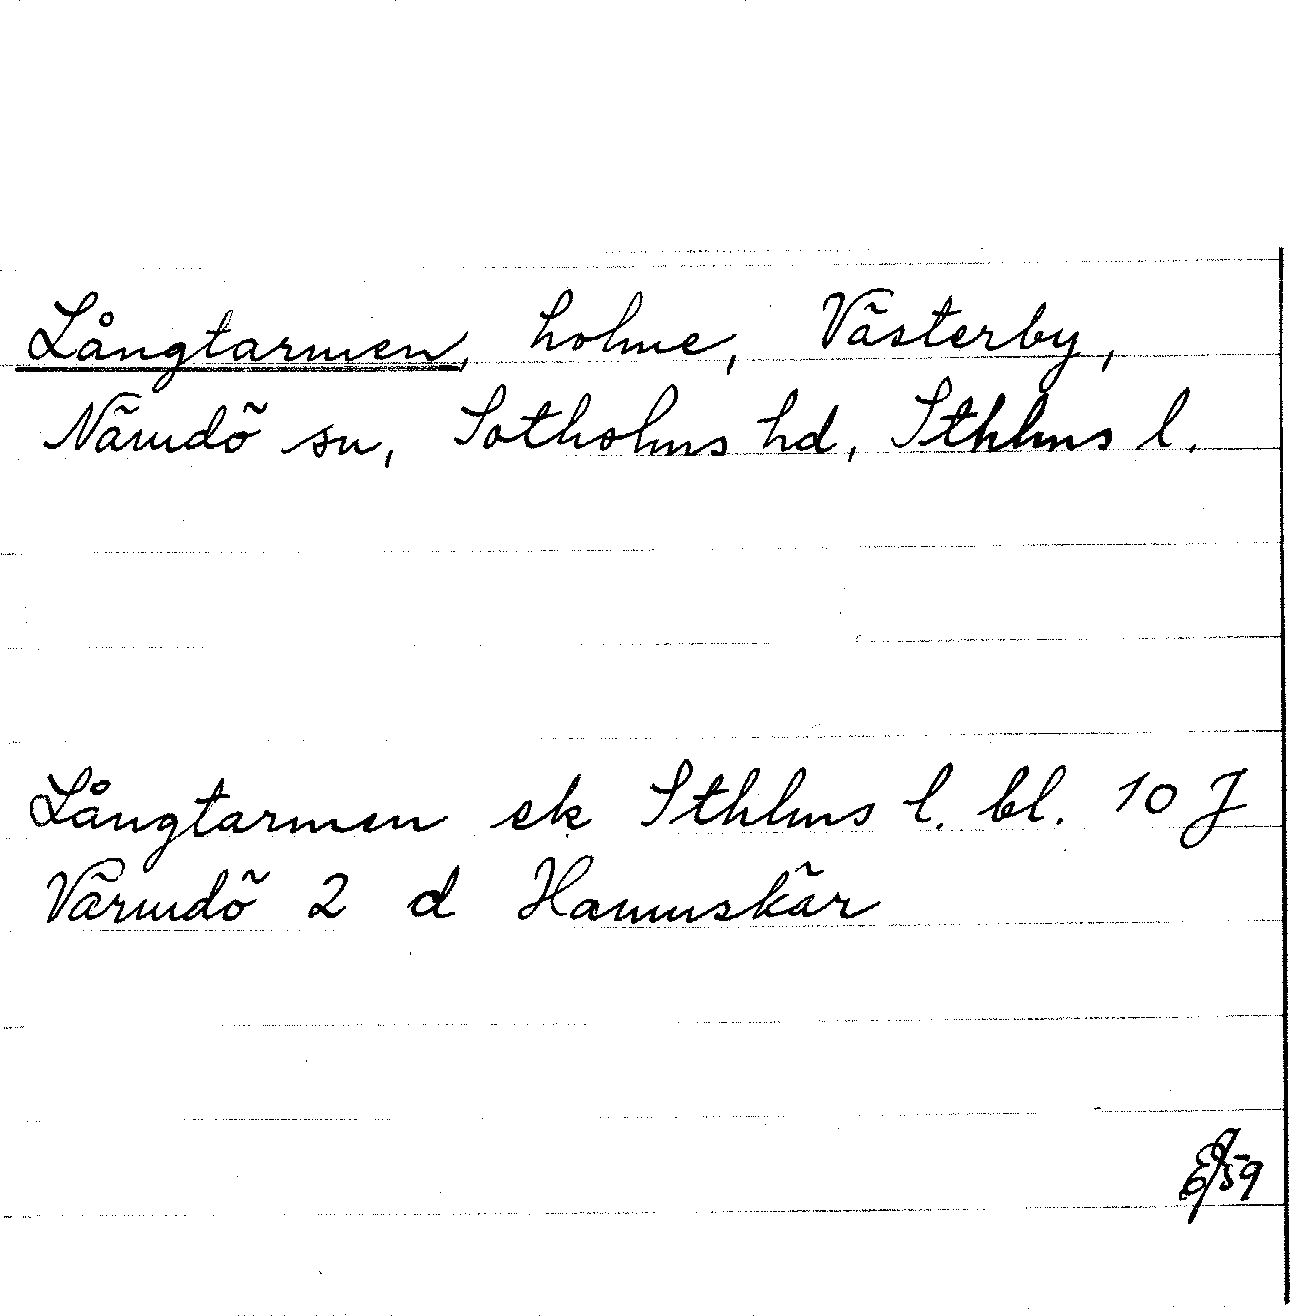 Långtarmen, holme, Västerby,
Nämdö sn, Sotholms hd, Sthlms l.
Långtarmen ek Sthlms l. bl. 10 J
Värmdö 2 d Hamnskär